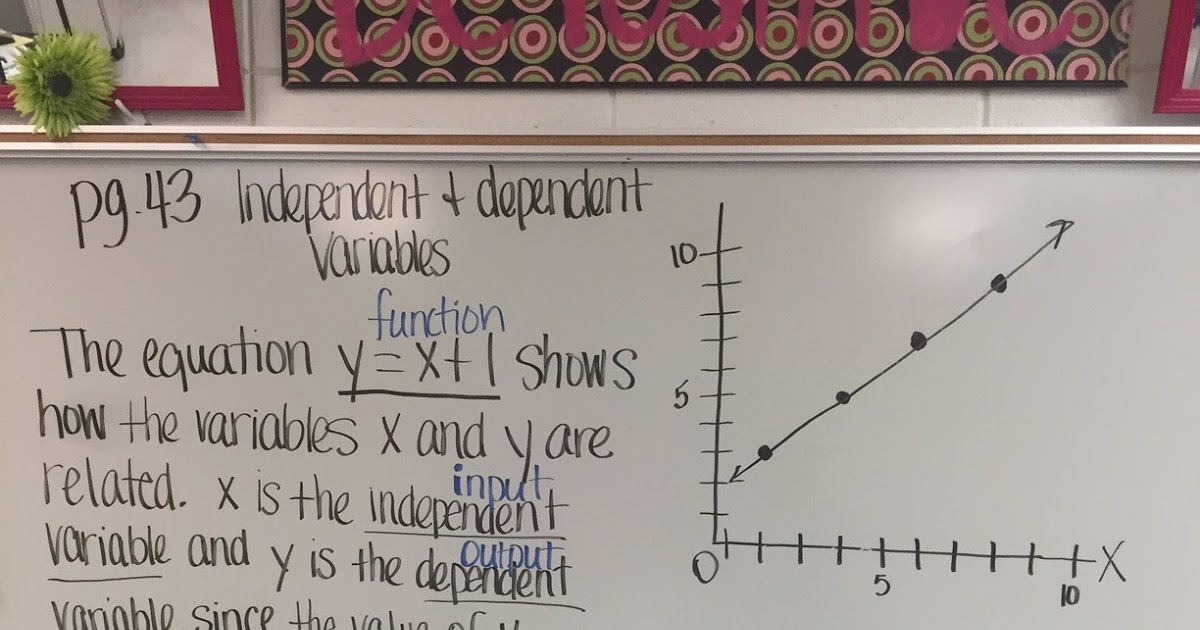 pg.43 Independent + dependent
Variables
function
The equation y=x+1 shows
how the variables x and y are
related. x is the independent
input
variable and y is the dependent
output
variable since the value of y
10
5
0
5
10
X